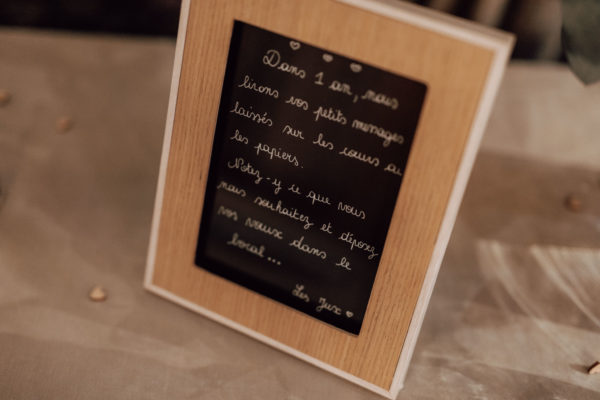 Dans 1 an, nous
lirons vos petits messages
laissés sur les cœurs ou
les papiers.
Notez-y ce que vous
nous souhaitez et déposez
vos vœux dans le
bocal...
Les Jux ♡